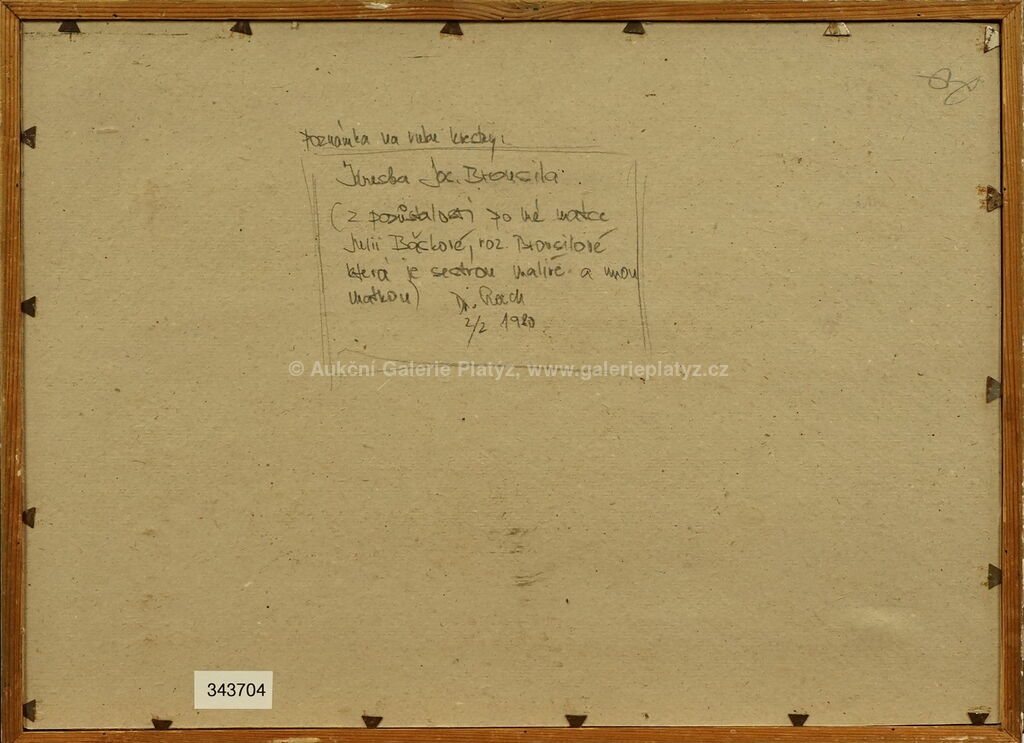 Poznámka na rubu kresby:
Kresba Jos. Brousila
(z pozůstalosti po mé matce
Julii Báčkové, roz. Brousilové
která je sestrou malíře a mou
matkou)
Dr.
2/2 1980
© Aukční Galerie Platýz, www.galerieplatyz.cz
343704